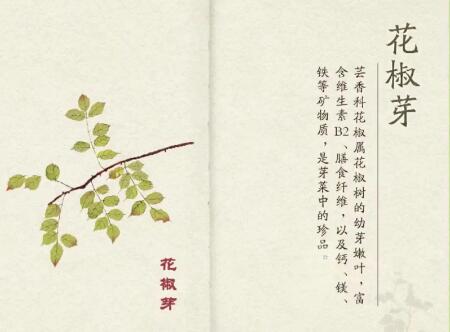 花椒芽
芸香科花椒属花椒树的幼芽嫩叶，富
含维生素B2、膳食纤维，以及钙、镁、
铁等矿物质，是芽菜中的珍品。
花椒芽